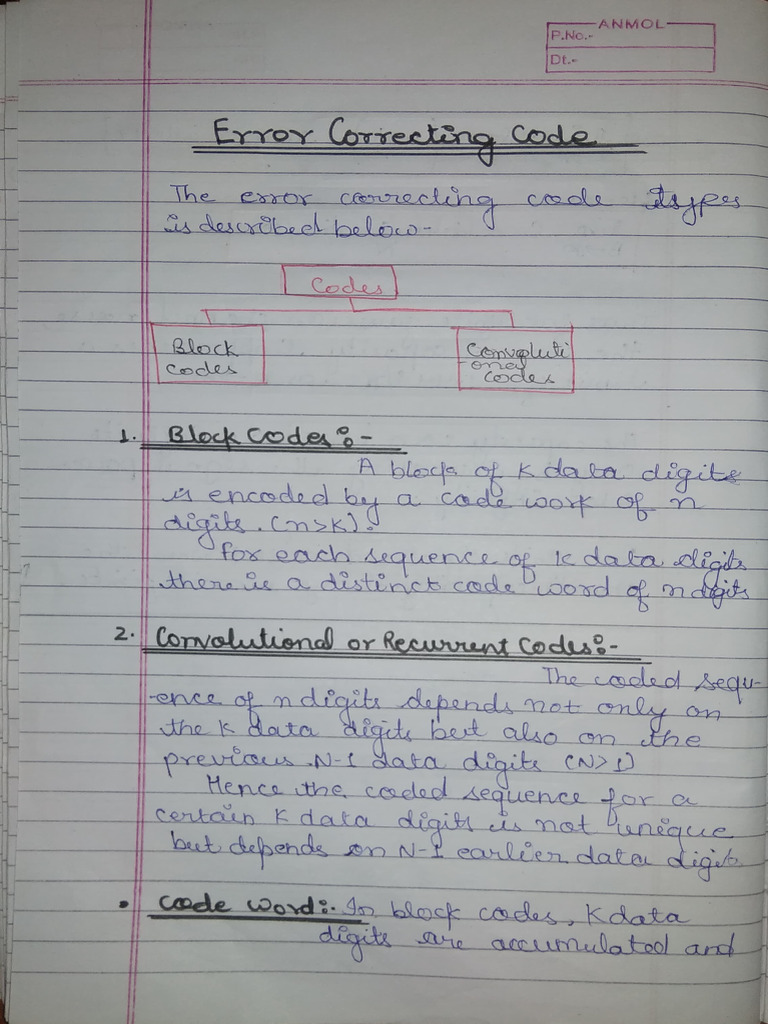 ANMOL
P.No.-
Dt.-
Error Correcting Code
The error correcting code types
is described below-
Codes
Block
codes
Convoluti
onal
codes
1. Block Codes :-
A block of K data digits
is encoded by a code work of n
digits. (n>K).
for each sequence of K data digits
there is a distinct code word of n digits
2. Convolutional or Recurrent Codes:-
The coded sequ-
-ence of n digits depends not only on
the K data digits but also on the
previous N-1 data digits (N>1)
Hence the coded sequence for a
certain K data digits is not unique
but depends on N-1 earlier data digits.
• Code word:- In block codes, K data
digits are accumulated and